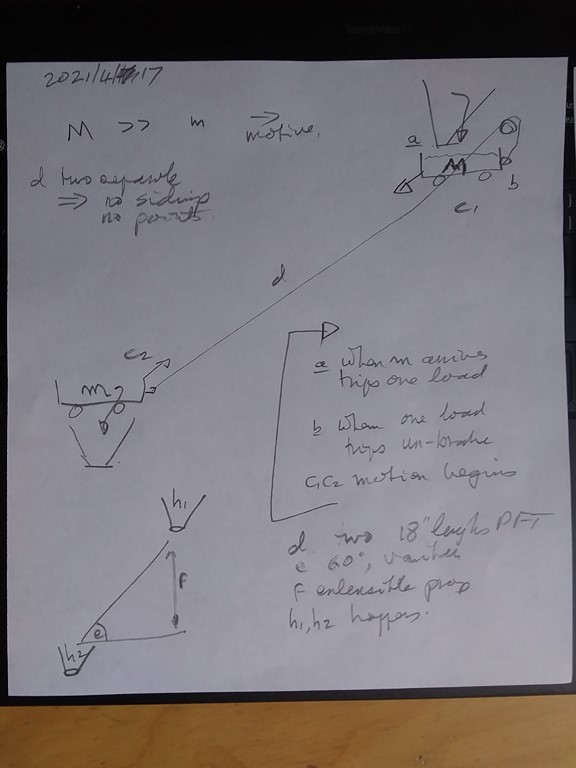 2021/4/17
M >> m → motive.
d two separate
⇒ no sidings
no points
a
M
b
c1
d
c2
m
a when m arrives
trips one load
b when one load
trips un-brake
c1 c2 motion begins
d two 18" lengths PFT
e 60°,
F extensible prop
h1, h2 hoppers.
h1
F
e
h2